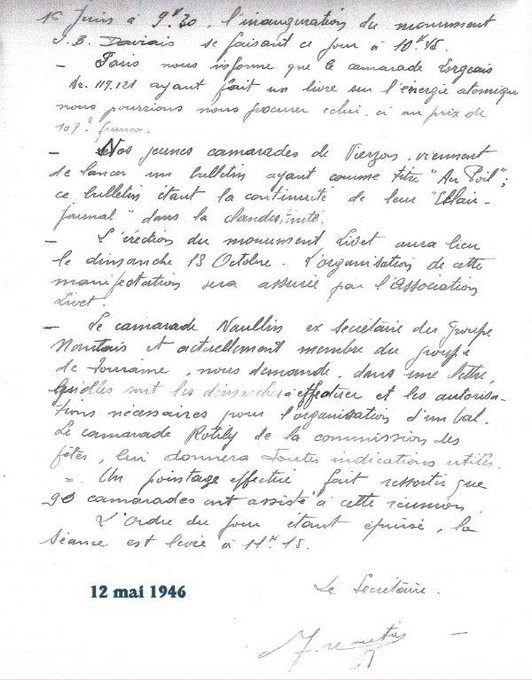 1er Juin à 9h30, l'inauguration du monument
J. B. Daviais se faisant ce jour à 10h45.
– Paris nous informe que le camarade Lorgeais
119.121 ayant fait un livre sur l'énergie atomique
nous pourrions nous procurer celui-ci au prix de
107 francs.
– Nos jeunes camarades de Vierzon, viennent
de lancer un bulletin ayant comme titre "Au Poil";
ce bulletin étant la continuité de leur
journal" dans la clandestinité.
– L'érection du monument Livet aura lieu
le dimanche 13 Octobre. L'organisation de cette
manifestation sera assurée par l'Association
Livet.
– Le camarade Naullin ex secrétaire du Groupe
Nantais et actuellement membre du groupe
de Touraine, nous demande, dans une lettre,
quelles sont les démarches à effectuer et les autorisa-
tions nécessaires pour l'organisation d'un bal.
Le camarade Rotily de la commission des
fêtes, lui donnera toutes indications utiles.
– Un pointage effectué fait ressortir que
90 camarades ont assisté à cette réunion.
L'Ordre du jour étant épuisé, la
séance est levée à 11h15.
12 mai 1946
Le Secrétaire.